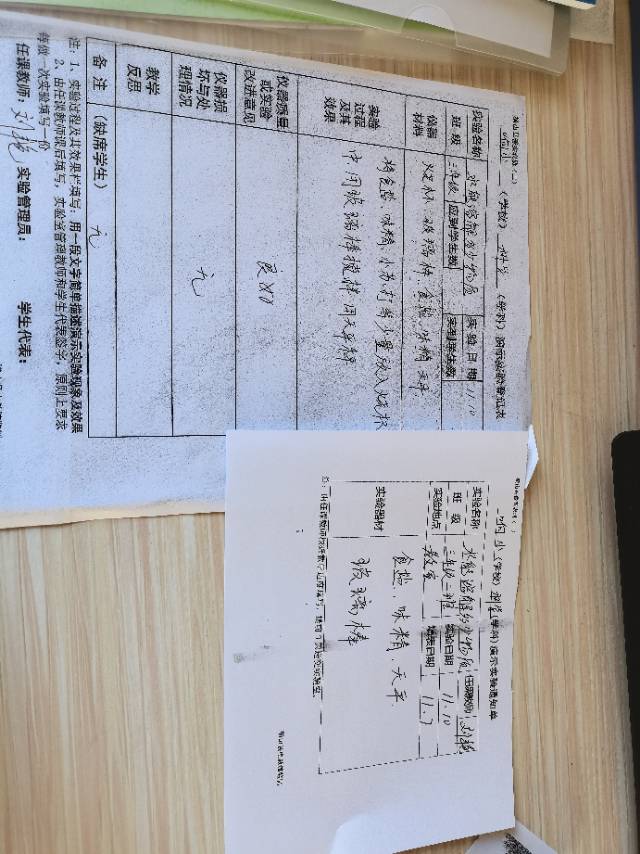 小(学校) 科学(学科)演示实验登记表
实验名称 水能溶解多少物质 实验日期 11.10
班级 三年级 应到学生数 实到学生数
仪器材料 烧杯、玻璃棒、食盐、味精、天平
实验过程及其效果 将食盐、味精、小苏打等少量放入烧杯
中用玻璃棒搅拌用天平称
仪器质量或实验改进意见 良好
仪器损坏与处理情况 无
教学反思
备注(缺席学生) 无
注:1、实验过程及其效果栏填写:用一段文字简单描述演示实验现象及效果
2、由任课教师课后填写,实验室管理教师和学生代表签字,原则上要求
每做一次实验填写一份
任课教师:刘艳 实验管理员: 学生代表:
小(学校)科学(学科)演示实验通知单
实验名称 水能溶解多少物质 任课教师 刘艳
班级 三年级二班 实验日期 11.10
实验地点 教室 填表日期 11.7
实验器材 食盐、味精、天平
玻璃棒